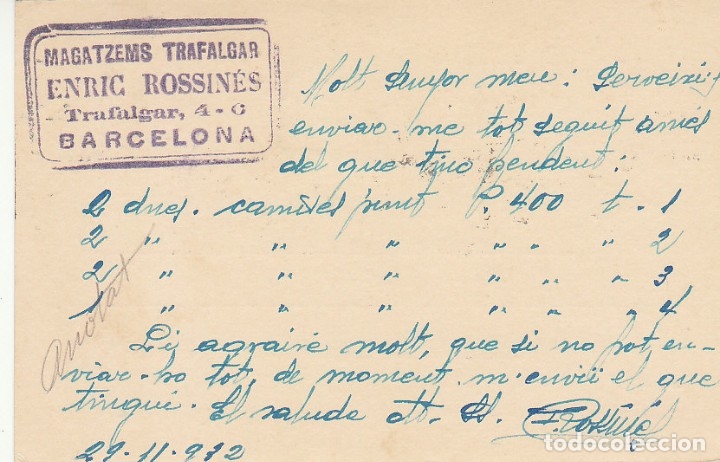 MAGATZEMS TRAFALGAR
ENRIC ROSSINÉS
Trafalgar, 4-6
BARCELONA
Molt Senyor meu: Serveixi's
enviar-me tot seguit amés
del que tinc pendent:
2 dnes. camises punt P. 400 t. 1
2 " " " " " " 2
2 " " " " " " 3
1 " " " " " " 4
anotat
Li agrairé molt, que si no pot en-
viar-ho tot, de moment m'enviï el que
tingui. El saluda att. SS.
29-11-932
todocoleccion